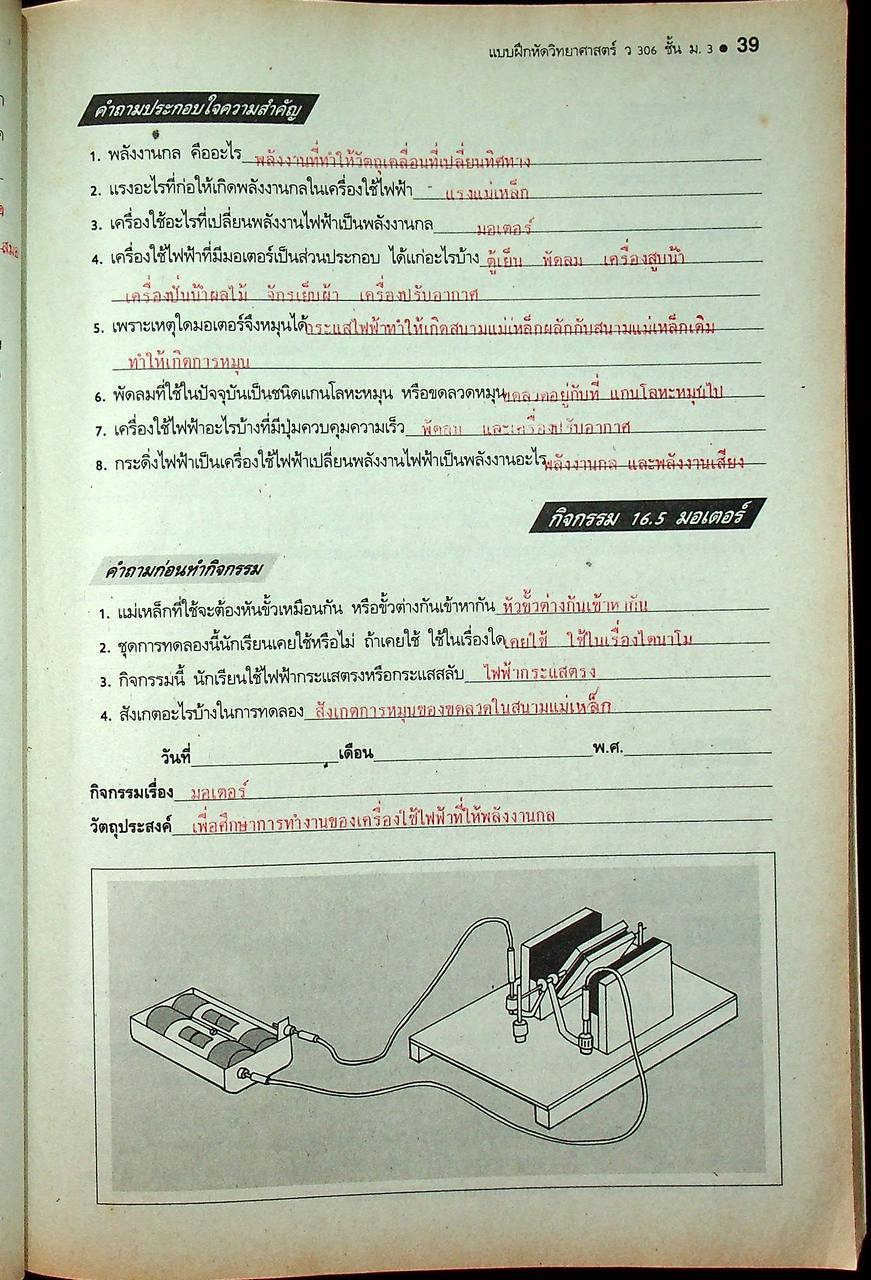 แบบฝึกหัดวิทยาศาสตร์ ว 306 ชั้น ม. 3 ● 39
คำถามประกอบใจความสำคัญ
1. พลังงานกล คืออะไร พลังงานที่ทำให้วัตถุเคลื่อนที่เปลี่ยนทิศทาง
2. แรงอะไรที่ก่อให้เกิดพลังงานกลในเครื่องใช้ไฟฟ้า แรงแม่เหล็ก
3. เครื่องใช้อะไรที่เปลี่ยนพลังงานไฟฟ้าเป็นพลังงานกล มอเตอร์
4. เครื่องใช้ไฟฟ้าที่มีมอเตอร์เป็นส่วนประกอบ ได้แก่อะไรบ้าง ตู้เย็น พัดลม เครื่องสูบน้ำ
เครื่องปั่นน้ำผลไม้ จักรเย็บผ้า เครื่องปรับอากาศ
5. เพราะเหตุใดมอเตอร์จึงหมุนได้ กระแสไฟฟ้าทำให้เกิดสนามแม่เหล็กผลักกับสนามแม่เหล็กเดิม
ทำให้เกิดการหมุน
6. พัดลมที่ใช้ในปัจจุบันเป็นชนิดแกนโลหะหมุน หรือขดลวดหมุน ขดลวดอยู่กับที่ แกนโลหะหมุนไป
7. เครื่องใช้ไฟฟ้าอะไรบ้างที่มีปุ่มควบคุมความเร็ว พัดลม และเครื่องปรับอากาศ
8. กระดิ่งไฟฟ้าเป็นเครื่องใช้ไฟฟ้าเปลี่ยนพลังงานไฟฟ้าเป็นพลังงานอะไร พลังงานกล และพลังงานเสียง
กิจกรรม 16.5 มอเตอร์
คำถามก่อนทำกิจกรรม
1. แม่เหล็กที่ใช้จะต้องหันขั้วเหมือนกัน หรือขั้วต่างกันเข้าหากัน หัวขั้วต่างกันเข้าหากัน
2. ชุดการทดลองนี้นักเรียนเคยใช้หรือไม่ ถ้าเคยใช้ ใช้ในเรื่องใด เคยใช้ ใช้ในเรื่องไดนาโม
3. กิจกรรมนี้ นักเรียนใช้ไฟฟ้ากระแสตรงหรือกระแสสลับ ไฟฟ้ากระแสตรง
4. สังเกตอะไรบ้างในการทดลอง สังเกตการหมุนของขดลวดในสนามแม่เหล็ก
วันที่ เดือน พ.ศ.
กิจกรรมเรื่อง มอเตอร์
วัตถุประสงค์ เพื่อศึกษาการทำงานของเครื่องใช้ไฟฟ้าที่ให้พลังงานกล